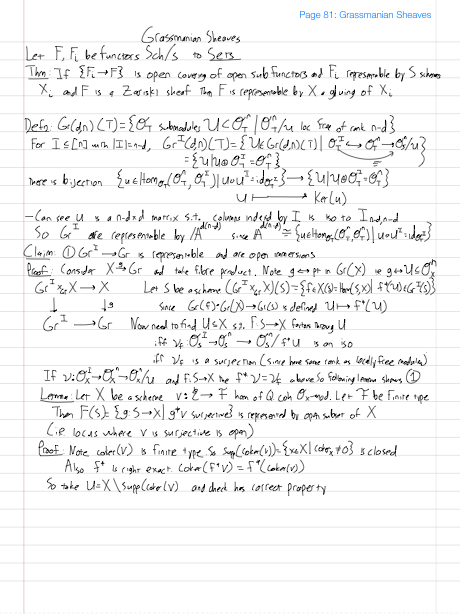 Page 81: Grassmanian Sheaves
Grassmanian Sheaves
Let F, F_i be functors Sch/S to Sets
Thm: If {F_i → F} is open covering of open subfunctors and F_i representable by S schemes
X_i and F is a Zariski sheaf Then F is representable by X a gluing of X_i
Defn: Gr(d,n)(T) = {O_T submodules U ⊂ O_T^n | O_T^n/U loc free of rank n-d}
For I ⊆ [n] with |I| = n-d, Gr^I(d,n)(T) = {U ∈ Gr(d,n)(T) | O_T^I ↪ O_T^n → O_T^n/U}
= {U | U ⊕ O_T^I = O_T^n}
There is bijection {u ∈ Hom_{O_T}(O_T^n, O_T^I) | u∘u^I = id_{O_T^I}} → {U | U ⊕ O_T^I = O_T^n}
u ↦ Ker(u)
- Can see u is a n-d×d matrix s.t. columns indexed by I is iso to I_{n-d,n-d}
So Gr^I are representable by A^{d(n-d)} since A^{d(n-d)} ≅ {u ∈ Hom_{O_T}(O_T^n, O_T^I) | u∘u^I = id_{O_T^I}}
Claim: ① Gr^I → Gr is representable and are open immersions
Proof: Consider X →^g Gr and take fibre product. Note g ↔ pt in Gr(X) ie g ↔ U ⊆ O_X^n
Gr^I ×_{Gr} X → X Let S be a scheme (Gr^I ×_{Gr} X)(S) = {f ∈ X(S) = Hom(S,X) | f*(U) ∈ Gr^I(S)}
↓ ↓g since Gr(f): Gr(X) → Gr(S) is defined U ↦ f*(U)
Gr^I → Gr Now need to find U ⊆ X s.t. f: S → X factors through U
iff v_f: O_S^I → O_S^n → O_S^n/f*U is an iso
iff v_f is a surjection (since have same rank as locally free modules)
If v: O_X^I → O_X^n → O_X^n/U and f: S → X the f*v = v_f above So following lemma shows ①
Lemma: Let X be a scheme v: E → F hom of Q coh O_X-mod. Let F be finite type
Then F(S) = {g: S → X | g*v surjective} is represented by open subset of X
(i.e. locus where v is surjective is open)
Proof: Note coker(v) is finite type So Supp(coker(v)) = {x ∈ X | coker_x ≠ 0} is closed
Also f* is right exact. coker(f*v) = f*(coker(v))
So take U = X \ Supp(coker(v)) and check has correct property